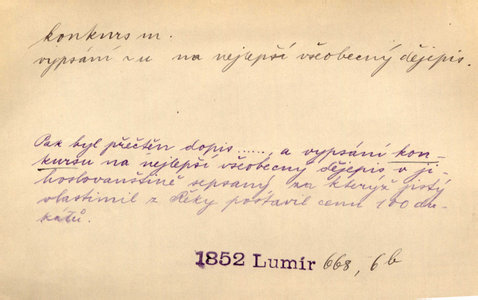 konkurs m.
vypsání ~u na nejlepší všeobecný dějepis.
Pak byl přečtěn dopis ...... a vypsání kon-
kursu na nejlepší všeobecný dějepis v ji-
hoslovanštině sepsaný, na kterýž jistý
vlastimil z Řěky postavil cenu 100 du-
katů.
1852 Lumír 668, 6b